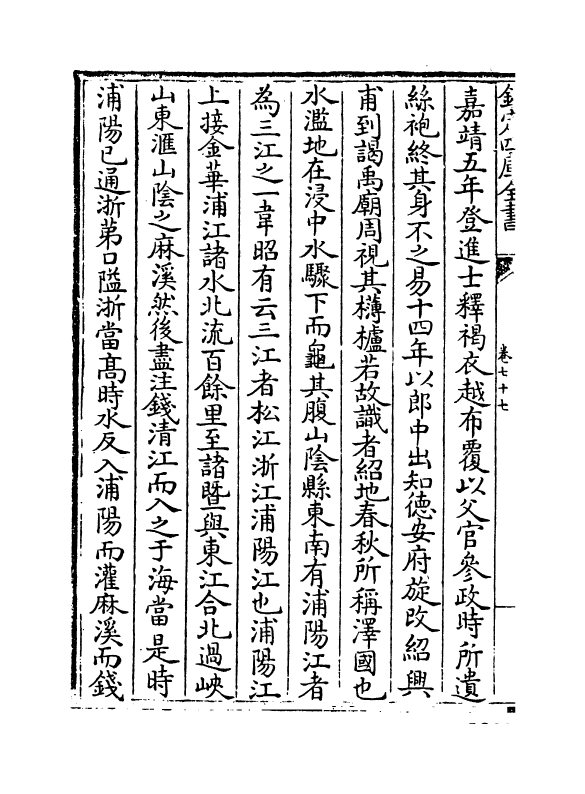 欽定四庫全書
卷七十七
嘉靖五年登進士釋褐衣越布覆以父官參政時所遺
絲袍終其身不之易十四年以郎中出知德安府旋改紹興
甫到謁禹廟周視其欂櫨若故識者紹地春秋所稱澤國也
水濫地在浸中水驟下而龜其腹山陰縣東南有浦陽江者
為三江之一韋昭有云三江者松江浙江浦陽江也浦陽江
上接金華浦江諸水北流百餘里至諸曁與東江合北過峽
山東滙山陰之麻溪然後盡注錢清江而入之于海當是時
浦陽已通浙苐口隘浙當髙時水反入浦陽而灌麻溪而錢